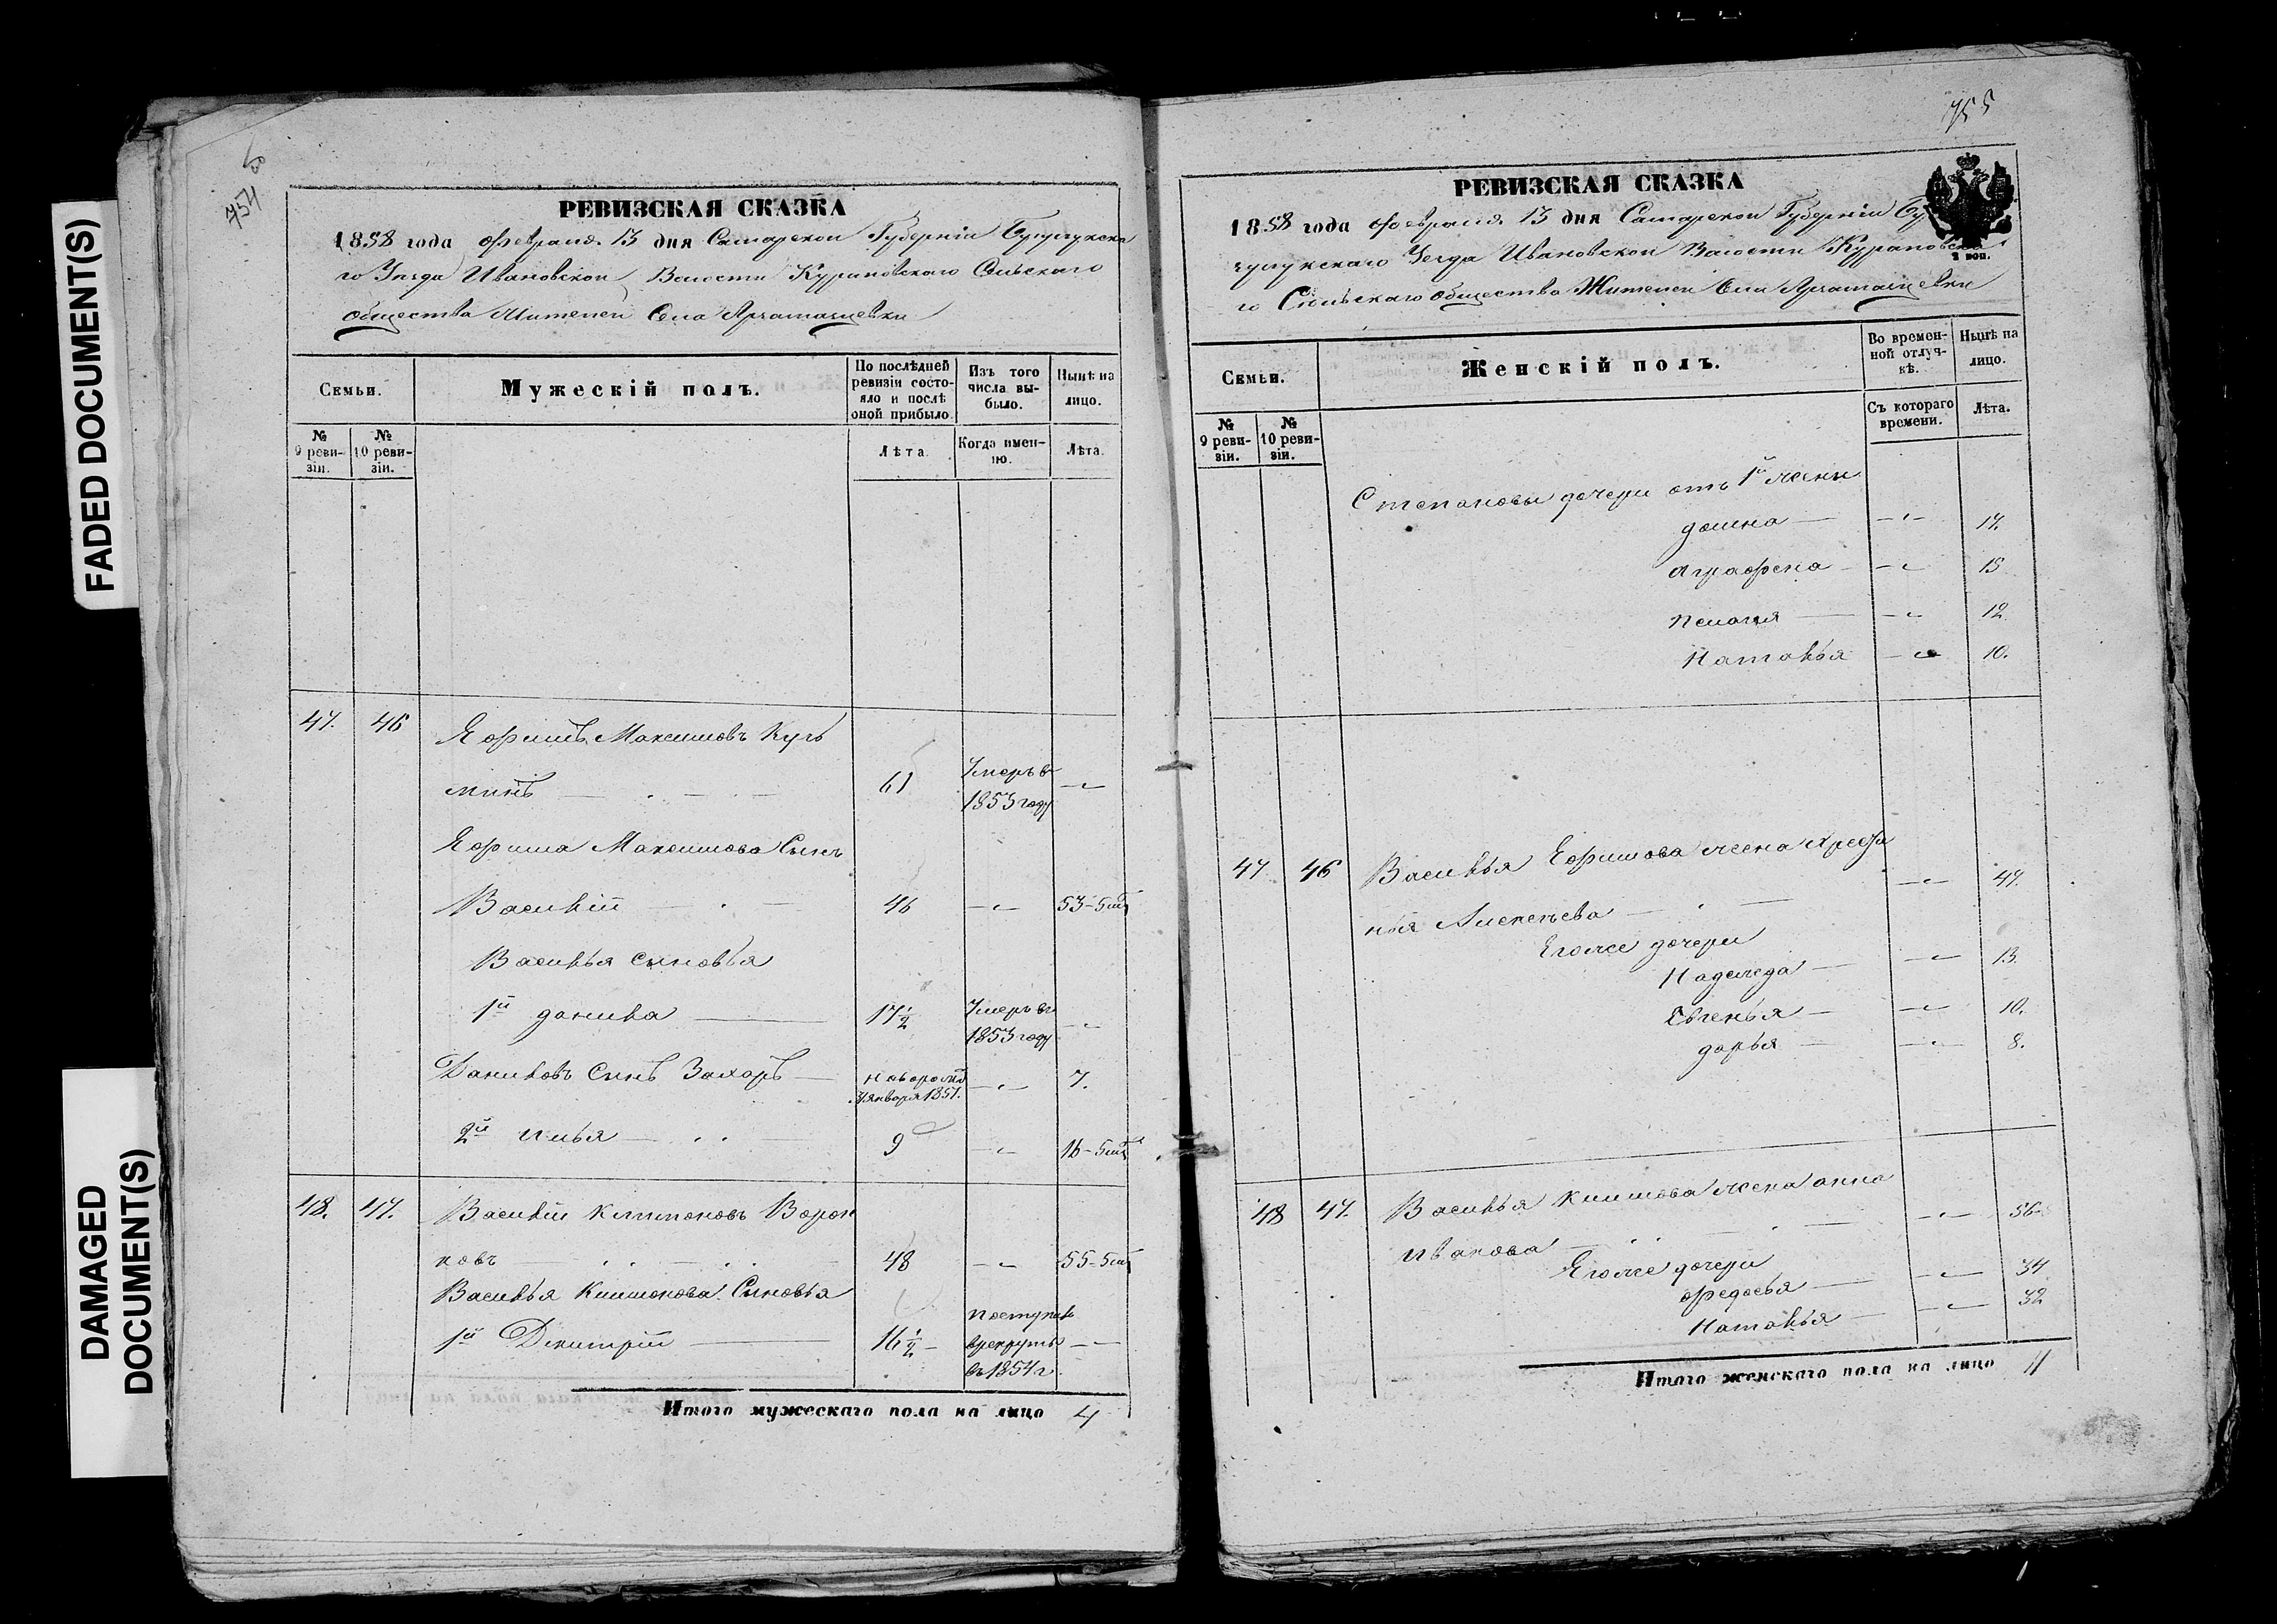 FADED DOCUMENT(S)
DAMAGED
DOCUMENT(S)
754
РЕВИЗСКАЯ СКАЗКА
1858 года февраля 13 дня Самарской Губерніи Бузулукска
го Уезда Ивановской Волости Сельскаго
общества Жителей Села
Семьи.
Мужескій полъ.
По послѣдней
ревизіи состо-
яло и послѣ
оной прибыло.
Изъ того
числа вы-
было.
Нынѣ на
лицо.
№
9 реви-
зіи.
№
10 реви-
зіи.
Лѣта.
Когда имен-
но.
Лѣта.
47. 46 Ефимъ Максимовъ Кузь
минъ 61 Умеръ въ
1853 году
Ефима Максимова Сынъ
Василій 46 53-5
Василья сыновья
1й данила 17½ Умеръ въ
1853 году
Даниловъ Сынъ Захаръ 7.
января 1851.
2й илья 9 16-5
48. 47. Василій Ворон
ковъ 48 55-5
Василья Сыновья
1й Дмитрій 16½ поступилъ
врекруты
въ 1854 г.
Итого мужескаго пола на лицо 4
755
РЕВИЗСКАЯ СКАЗКА
1858 года февраля 13 дня Самарской Губерніи Бу
зулукскаго Уезда Ивановской Волости
го Сельскаго общества Жителей Села
2 коп.
Семьи.
Женскій полъ.
Во времен-
ной отлуч-
кѣ.
Нынѣ на
лицо.
№
9 реви-
зіи.
№
10 реви-
зіи.
Съ котораго
времени.
Лѣта.
Степановы дочери отъ 1й жены
домна 17.
аграфена 15
пелагия 12
Наталья 10.
47 46 Василья Ефимова жена
Алексеева 47.
Егоже дочери
Надежда 13.
Евгенья 10.
дарья 8.
48 47. Василья жена анна
иванова 56
Егоже дочери
федосья 34
Наталья 32
Итого женскаго пола на лицо 11